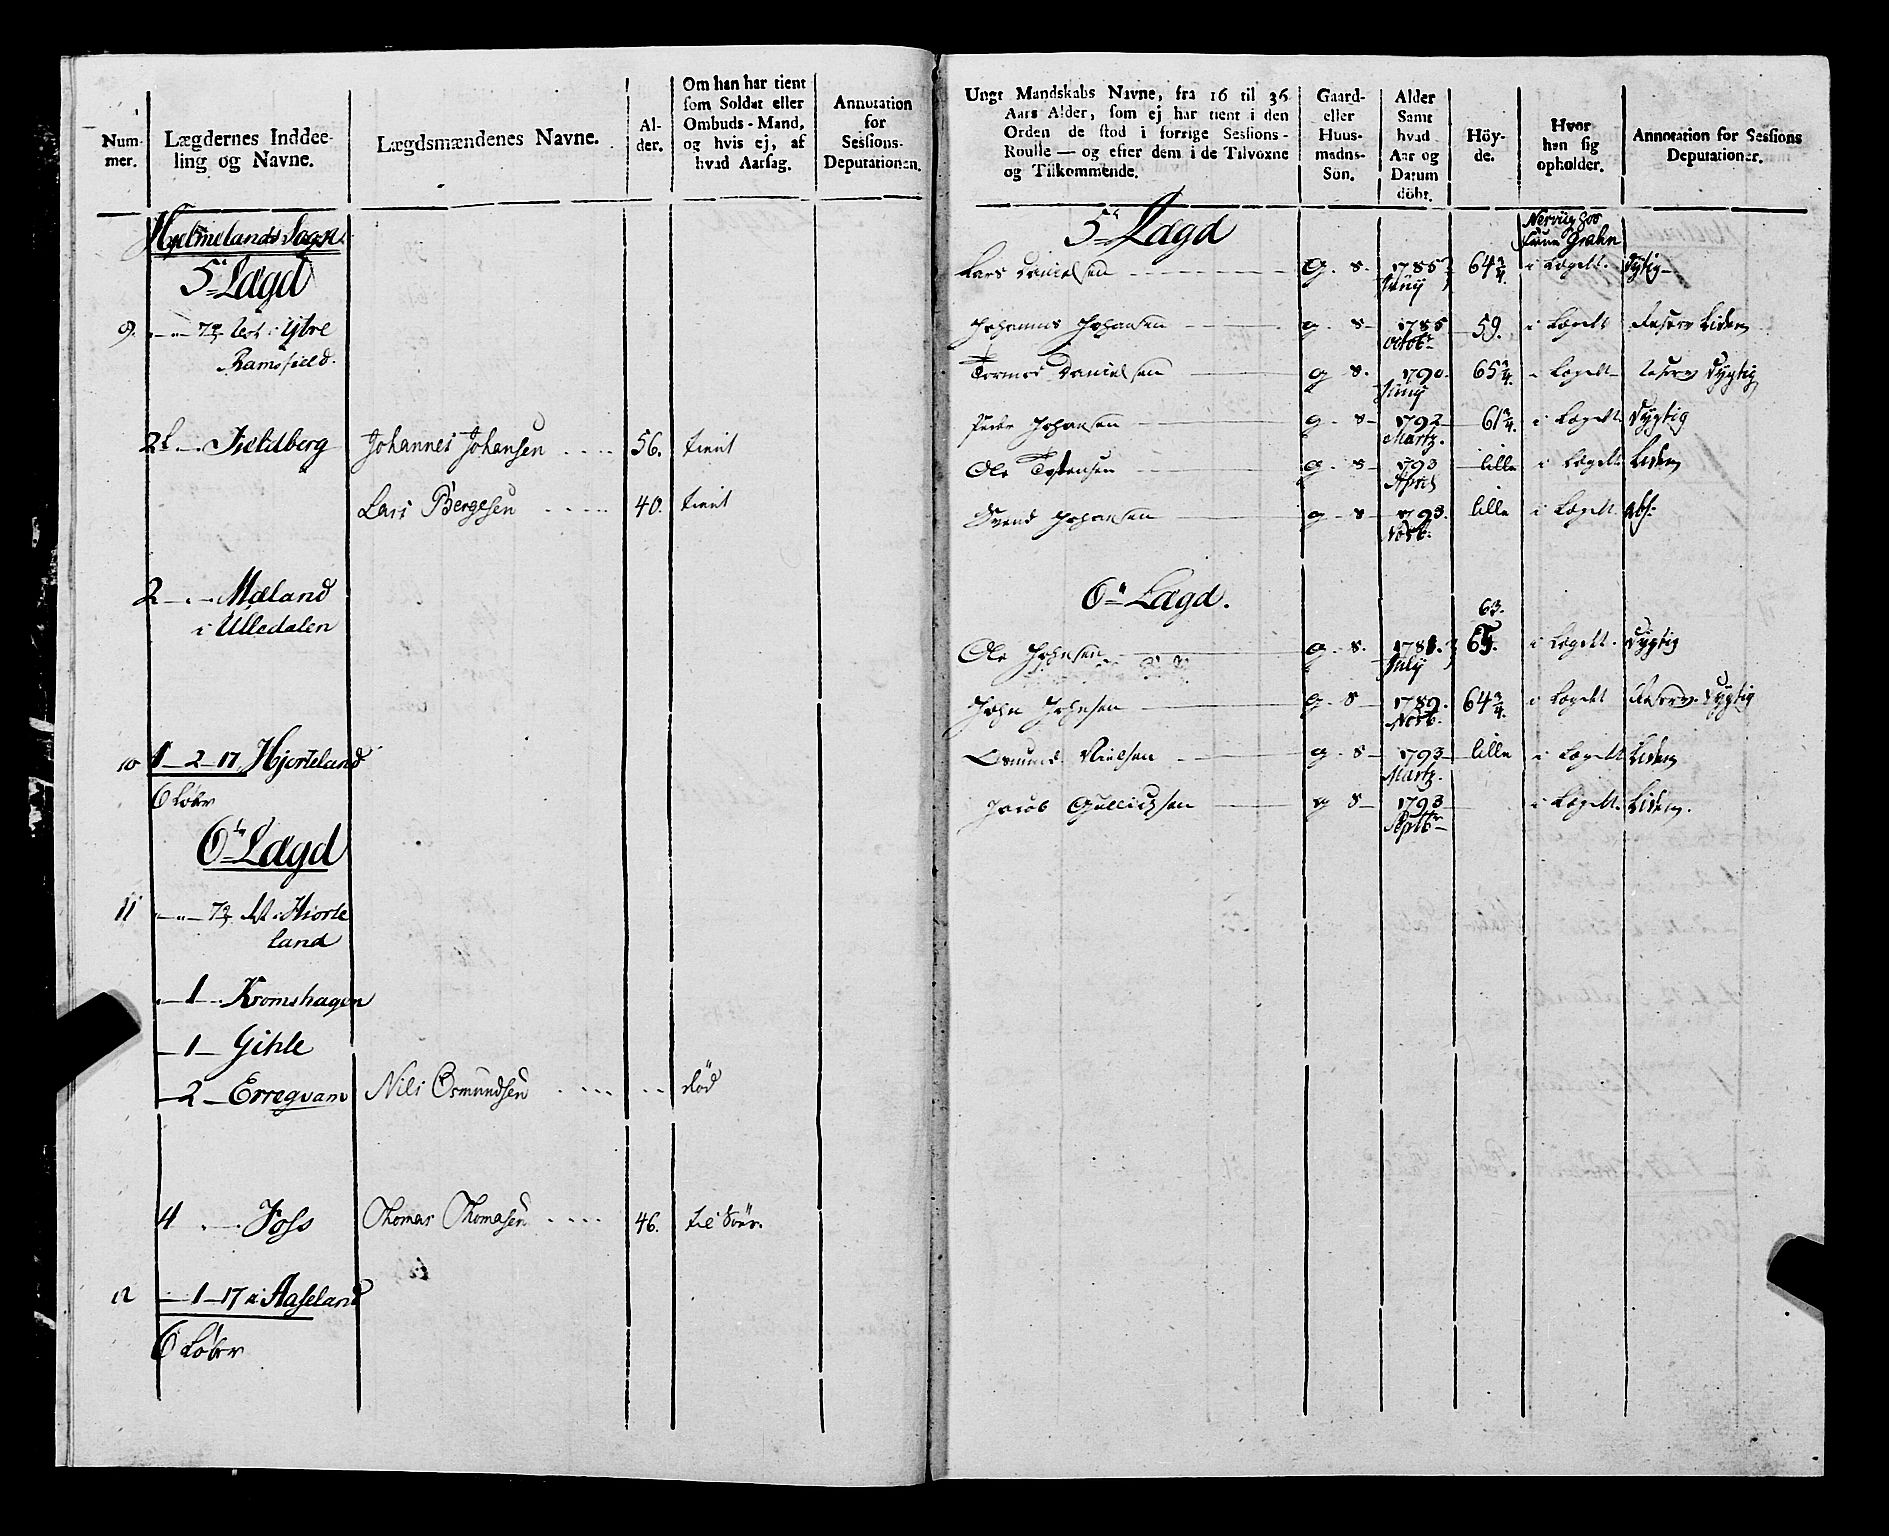 Num-
mer.
Lægdernes Inddee-
ling og Navne.
Lægdsmændenes Navne.
Al-
der.
Om han har tient
som Soldat eller
Ombuds-Mand,
og hvis ej, af
hvad Aarsag.
Annotation
for
Sessions-
Deputationen.
Hjelmelands Sogn.
5te Lægd
9. 72 i Ytre
Ramsfield.
2 Fieldberg Johannes Johansen 56. tient
Lars Bergesen 40. tient
2 Mæland
i Ulledalen
10 1 2 17 Hjorteland
6 Løber
6te Lægd
11 72 i Hiorte
land
1 Kromshagen
1 Gihle
2 Erreqvam Nils Osmundsen død
4 Foss Thomas Thomasen 46.
12 1 17 i Aaseland
6 Løber
Ungt Mandskabs Navne, fra 16 til 36
Aars Alder, som ej har tient i den
Orden de stod i forrige Sessions-
Roulle — og efter dem i de Tilvoxne
og Tilkommende.
Gaard-
eller
Huus-
mands-
Søn.
Alder
Samt
hvad
Aar og
Datum
döbt.
Höy-
de.
Hvor
han sig
opholder.
Annotation for Sessions
Deputationer.
5te Lægd
Lars Danielsen G. S. 1785 64 3/4 i Lægdt. Dygtig
Junij
Johannes Johansen g. S 1785 59. i Lægdt Liden
Octobr
Tormod Danielsen g S. 1790. 65 3/4. i Lægdt Dygtig
Junij
Peder Johansen g. S 1792 61 3/4. i Lægdt Dygtig
Martz.
Ole Tostensen g. S 1793 lille i Lægdt Liden
April
Svend Johansen g S 1793. lille i Lægdt
Novb.
6te Lægd.
63.
Ole Johnsen g. S. 1781. i Lægdt. Dygtig
July
John Johnsen g. S 1789. 64 3/4. i Lægdt Dygtig
Novb.
Osmund Nielsen g. S 1793 lille i Lægdt Liden
Martz.
Jacob Gullicksen g S 1793 i Lægdt. Liden.
Septbr